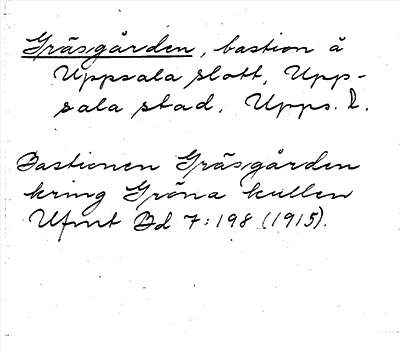 Gräsgården, bastion å
Uppsala slott, Upp-
sala stad, Upps. l.
Bastionen Gräsgården
kring Gröna kullen
Ufmt Bd 7:198 (1915).